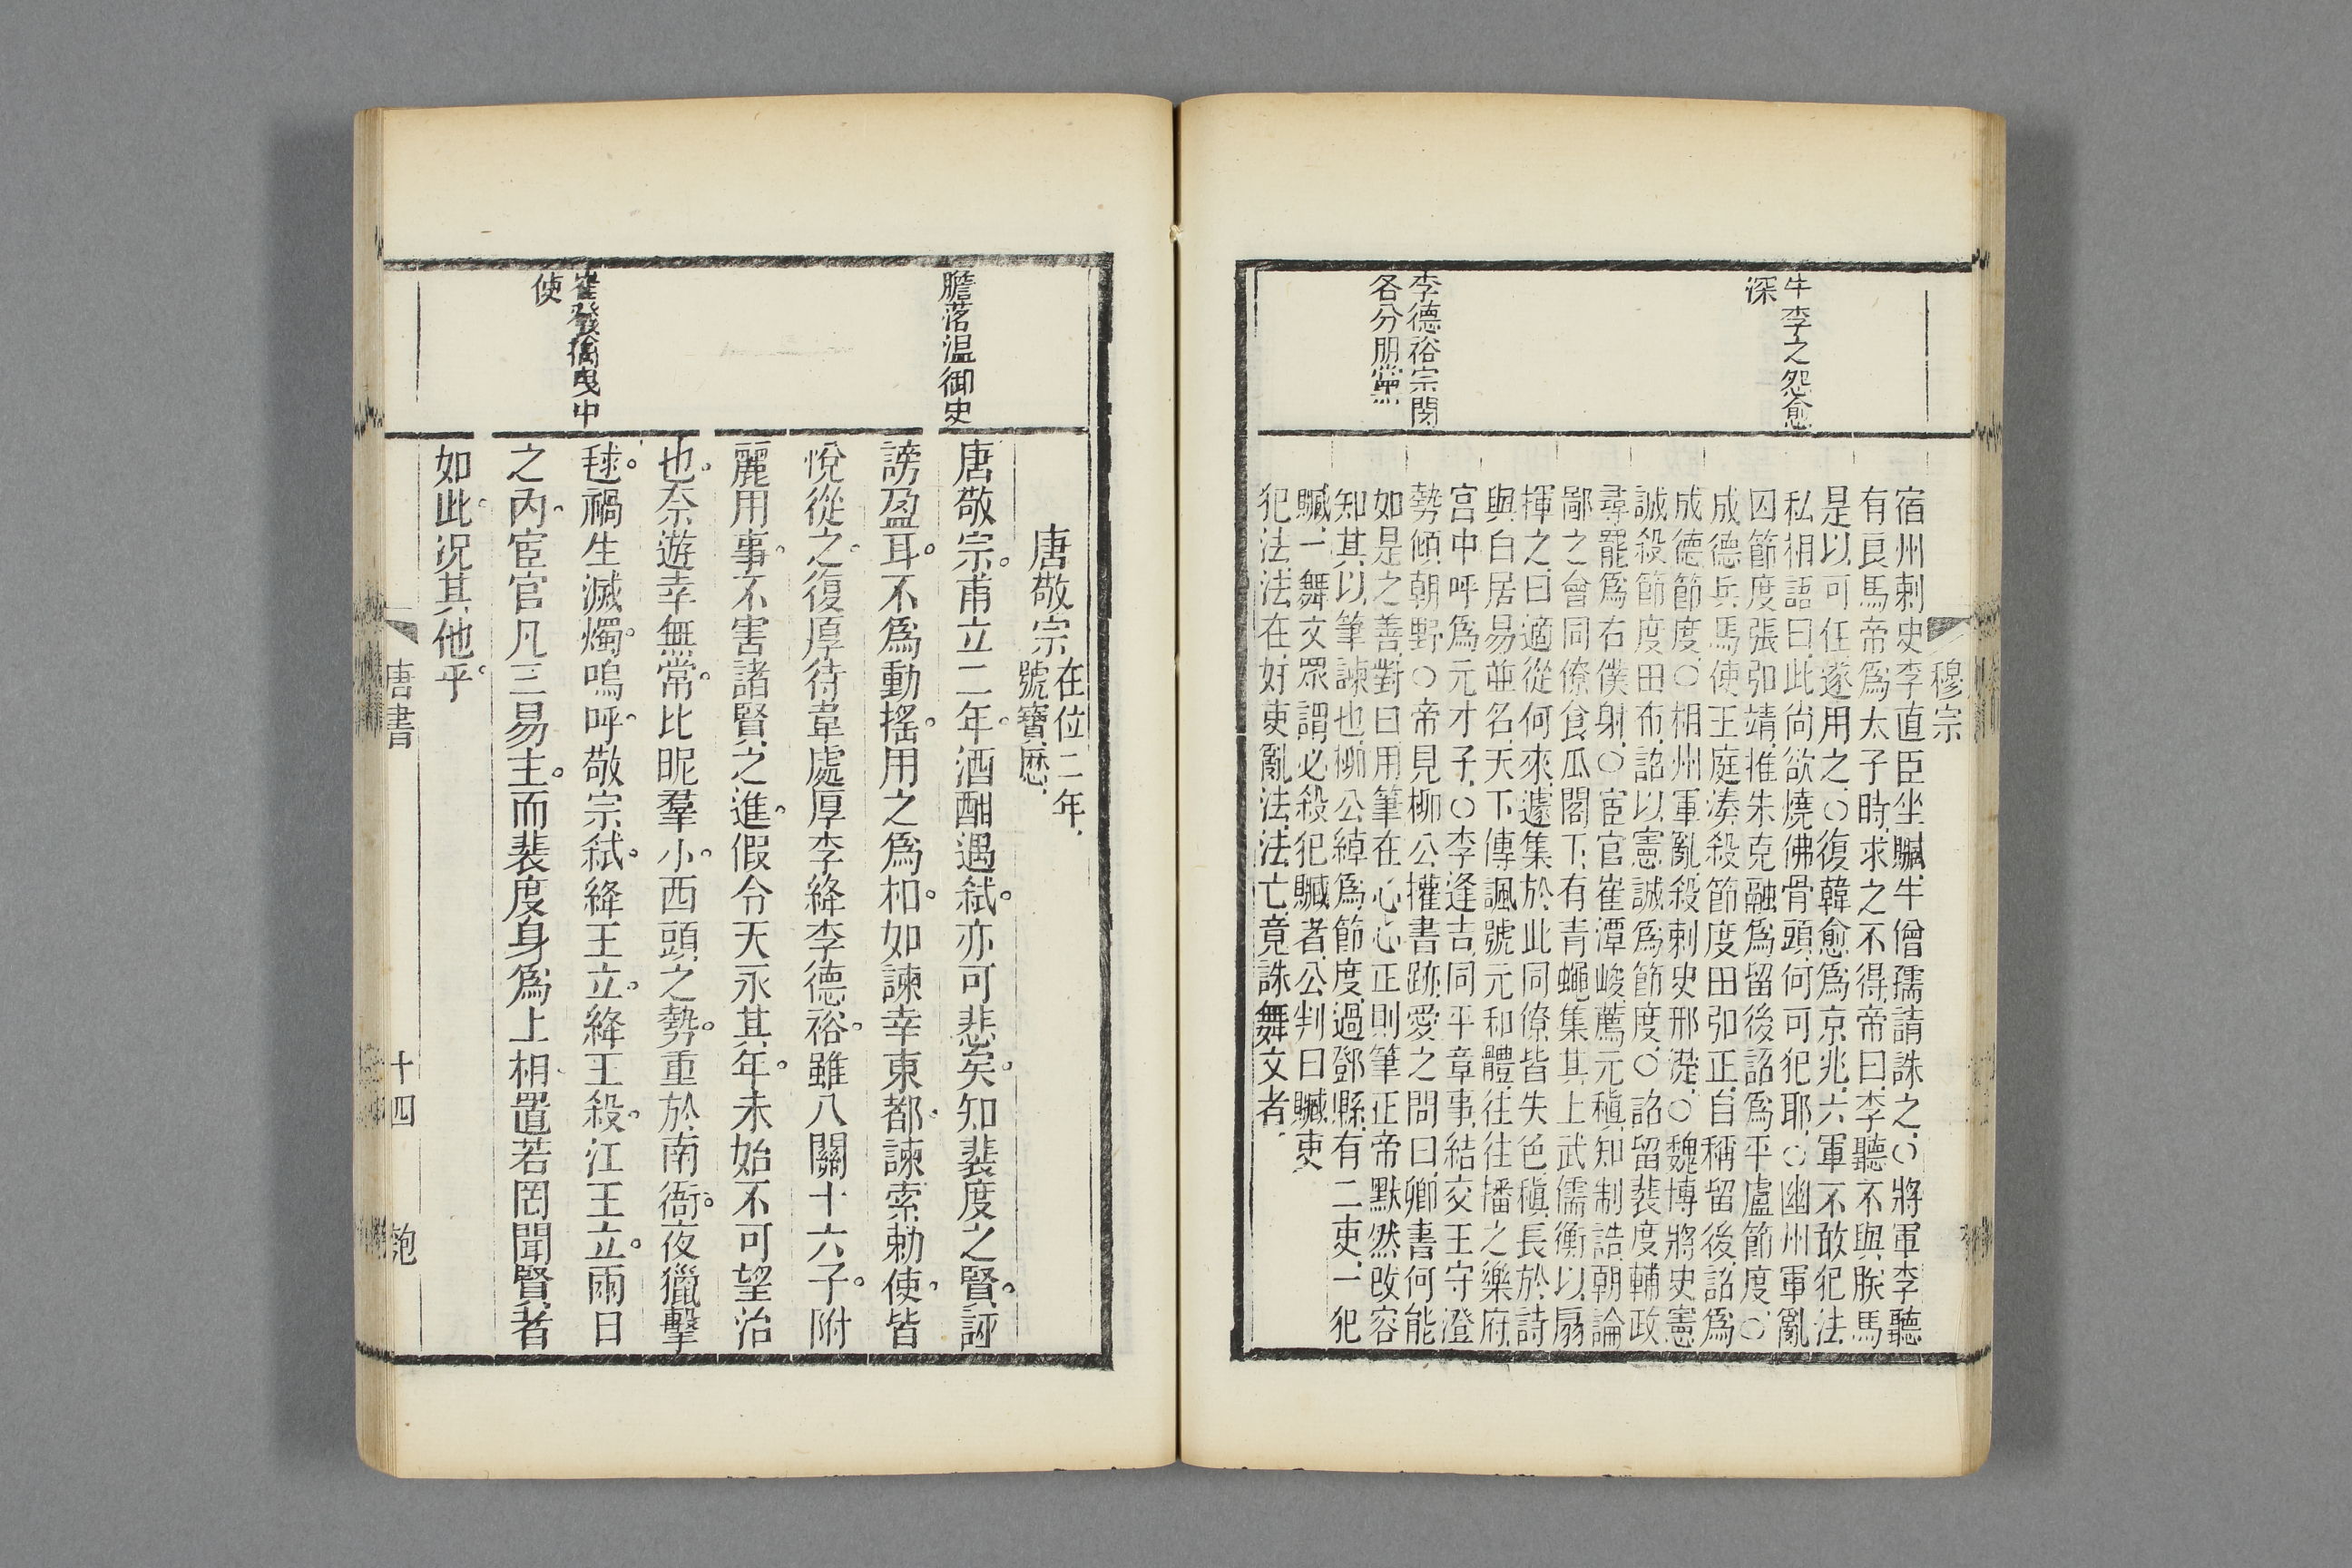 穆宗
牛李之怨愈
深
李德裕宗閔
各分朋黨
宿州刺史李直臣坐贓牛僧孺請誅之○將軍李聽
有良馬帝爲太子時求之不得帝曰李聽不與朕馬
是以可任遂用之○復韓愈爲京兆六軍不敢犯法
私相語曰此尚欲燒佛骨頭何可犯耶○幽州軍亂
囚節度張弘靖推朱克融爲留後詔爲平盧節度○
成德兵馬使王庭湊殺節度田弘正自稱留後詔爲
成德節度○相州軍亂殺刺史邢濋○魏博將史憲
誠殺節度田布詔以憲誠爲節度○詔留裴度輔政
尋罷爲右僕射○宦官崔潭峻薦元稹知制誥朝論
鄙之會同僚食瓜閣下有青蠅集其上武儒衡以扇
揮之曰適從何來遽集於此同僚皆失色稹長於詩
與白居易並名天下傳諷號元和體往往播之樂府
宮中呼爲元才子○李逢吉同平章事結交王守澄
勢傾朝野○帝見柳公權書跡愛之問曰卿書何能
如是之善對曰用筆在心心正則筆正帝默然改容
知其以筆諫也柳公綽爲節度過鄧縣有二吏一犯
贓一舞文眾謂必殺犯贓者公判曰贓吏
犯法法在奸吏亂法法亡竟誅舞文者
膽落温御史
崔發擒曳中
使
唐敬宗在位二年
號寶曆
唐敬宗甫立二年酒酣遇弒亦可悲矣知裴度之賢誣
謗盈耳不爲動搖用之爲相如諫幸東都諫索勅使皆
悅從之復厚待韋處厚李絳李德裕雖八關十六子附
麗用事不害諸賢之進假令天永其年未始不可望治
也奈遊幸無常比昵羣小西頭之勢重於南衙夜獵擊
毬禍生滅燭嗚呼敬宗弒絳王立絳王殺江王立兩日
之內宦官凡三易主而裴度身爲上相置若罔聞賢者
如此况其他乎
唐書
十四